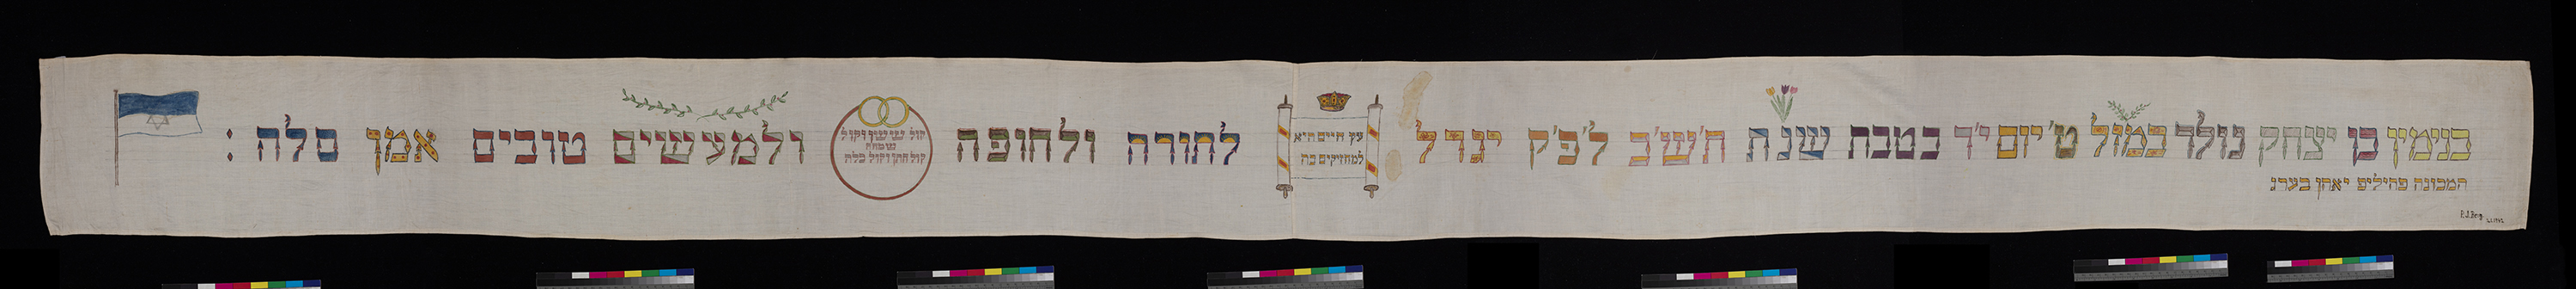 בנימין בן יצחק נולד במזל ט' יום י'ד בטבת שנת ת'ש'ב ל'פ'ק יגדל
המכונה פהיליפ יאהן בערג
P.J.Berg.
עץ חיים היא
למחזיקים בה
לתורה ולחופה
קול ששון וקול
שמחה
קול חתן וקול כלה
ולמעשים טובים אמן סלה :